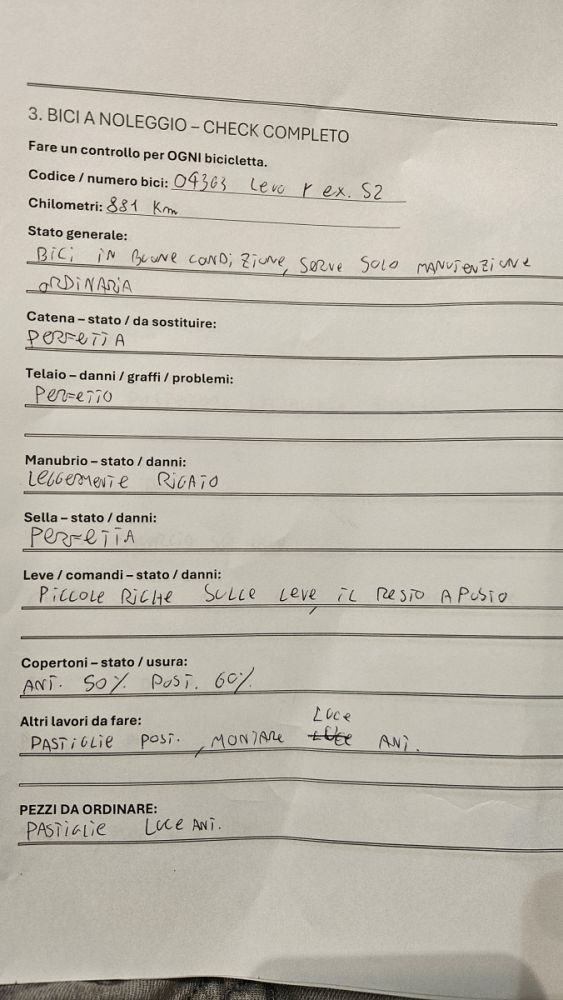 3. BICI A NOLEGGIO – CHECK COMPLETO
Fare un controllo per OGNI bicicletta.
Codice / numero bici: 04363 Levo r ex. S2
Chilometri: 881 Km
Stato generale:
BiCi iN BUONE CONDiZiONE, SERVE SOLO MANUTENZiONE
ORDiNARiA
Catena – stato / da sostituire:
PERFETTA
Telaio – danni / graffi / problemi:
PERFETTO
Manubrio – stato / danni:
LEGGERMENTE RiGATO
Sella – stato / danni:
PERFETTA
Leve / comandi – stato / danni:
PiCCOLE RiGHE SULLE LEVE, iL RESTO A POSTO
Copertoni – stato / usura:
ANT. 50% POST. 60%
Altri lavori da fare:
PASTiGLiE POST., MONTARE LUCE ANT.
PEZZI DA ORDINARE:
PASTiGLiE LUCE ANT.